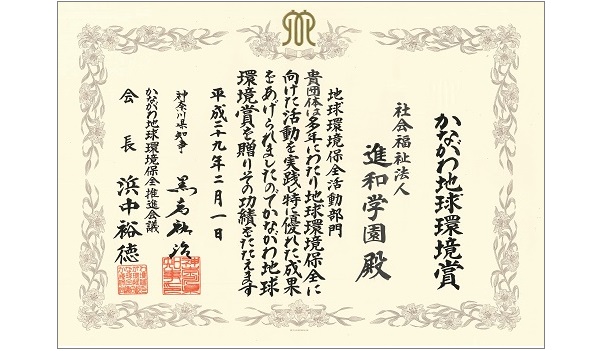 かながわ地球環境賞
社会福祉法人
進和学園 殿
地球環境保全活動部門
貴団体は多年にわたり地球環境保全に
向けた活動を実践し特に優れた成果
をあげられましたのでかながわ地球
環境賞を贈りその功績をたたえます
平成二十九年二月一日
神奈川県知事 黒岩祐治
かながわ地球環境保全推進会議
会長 浜中裕徳